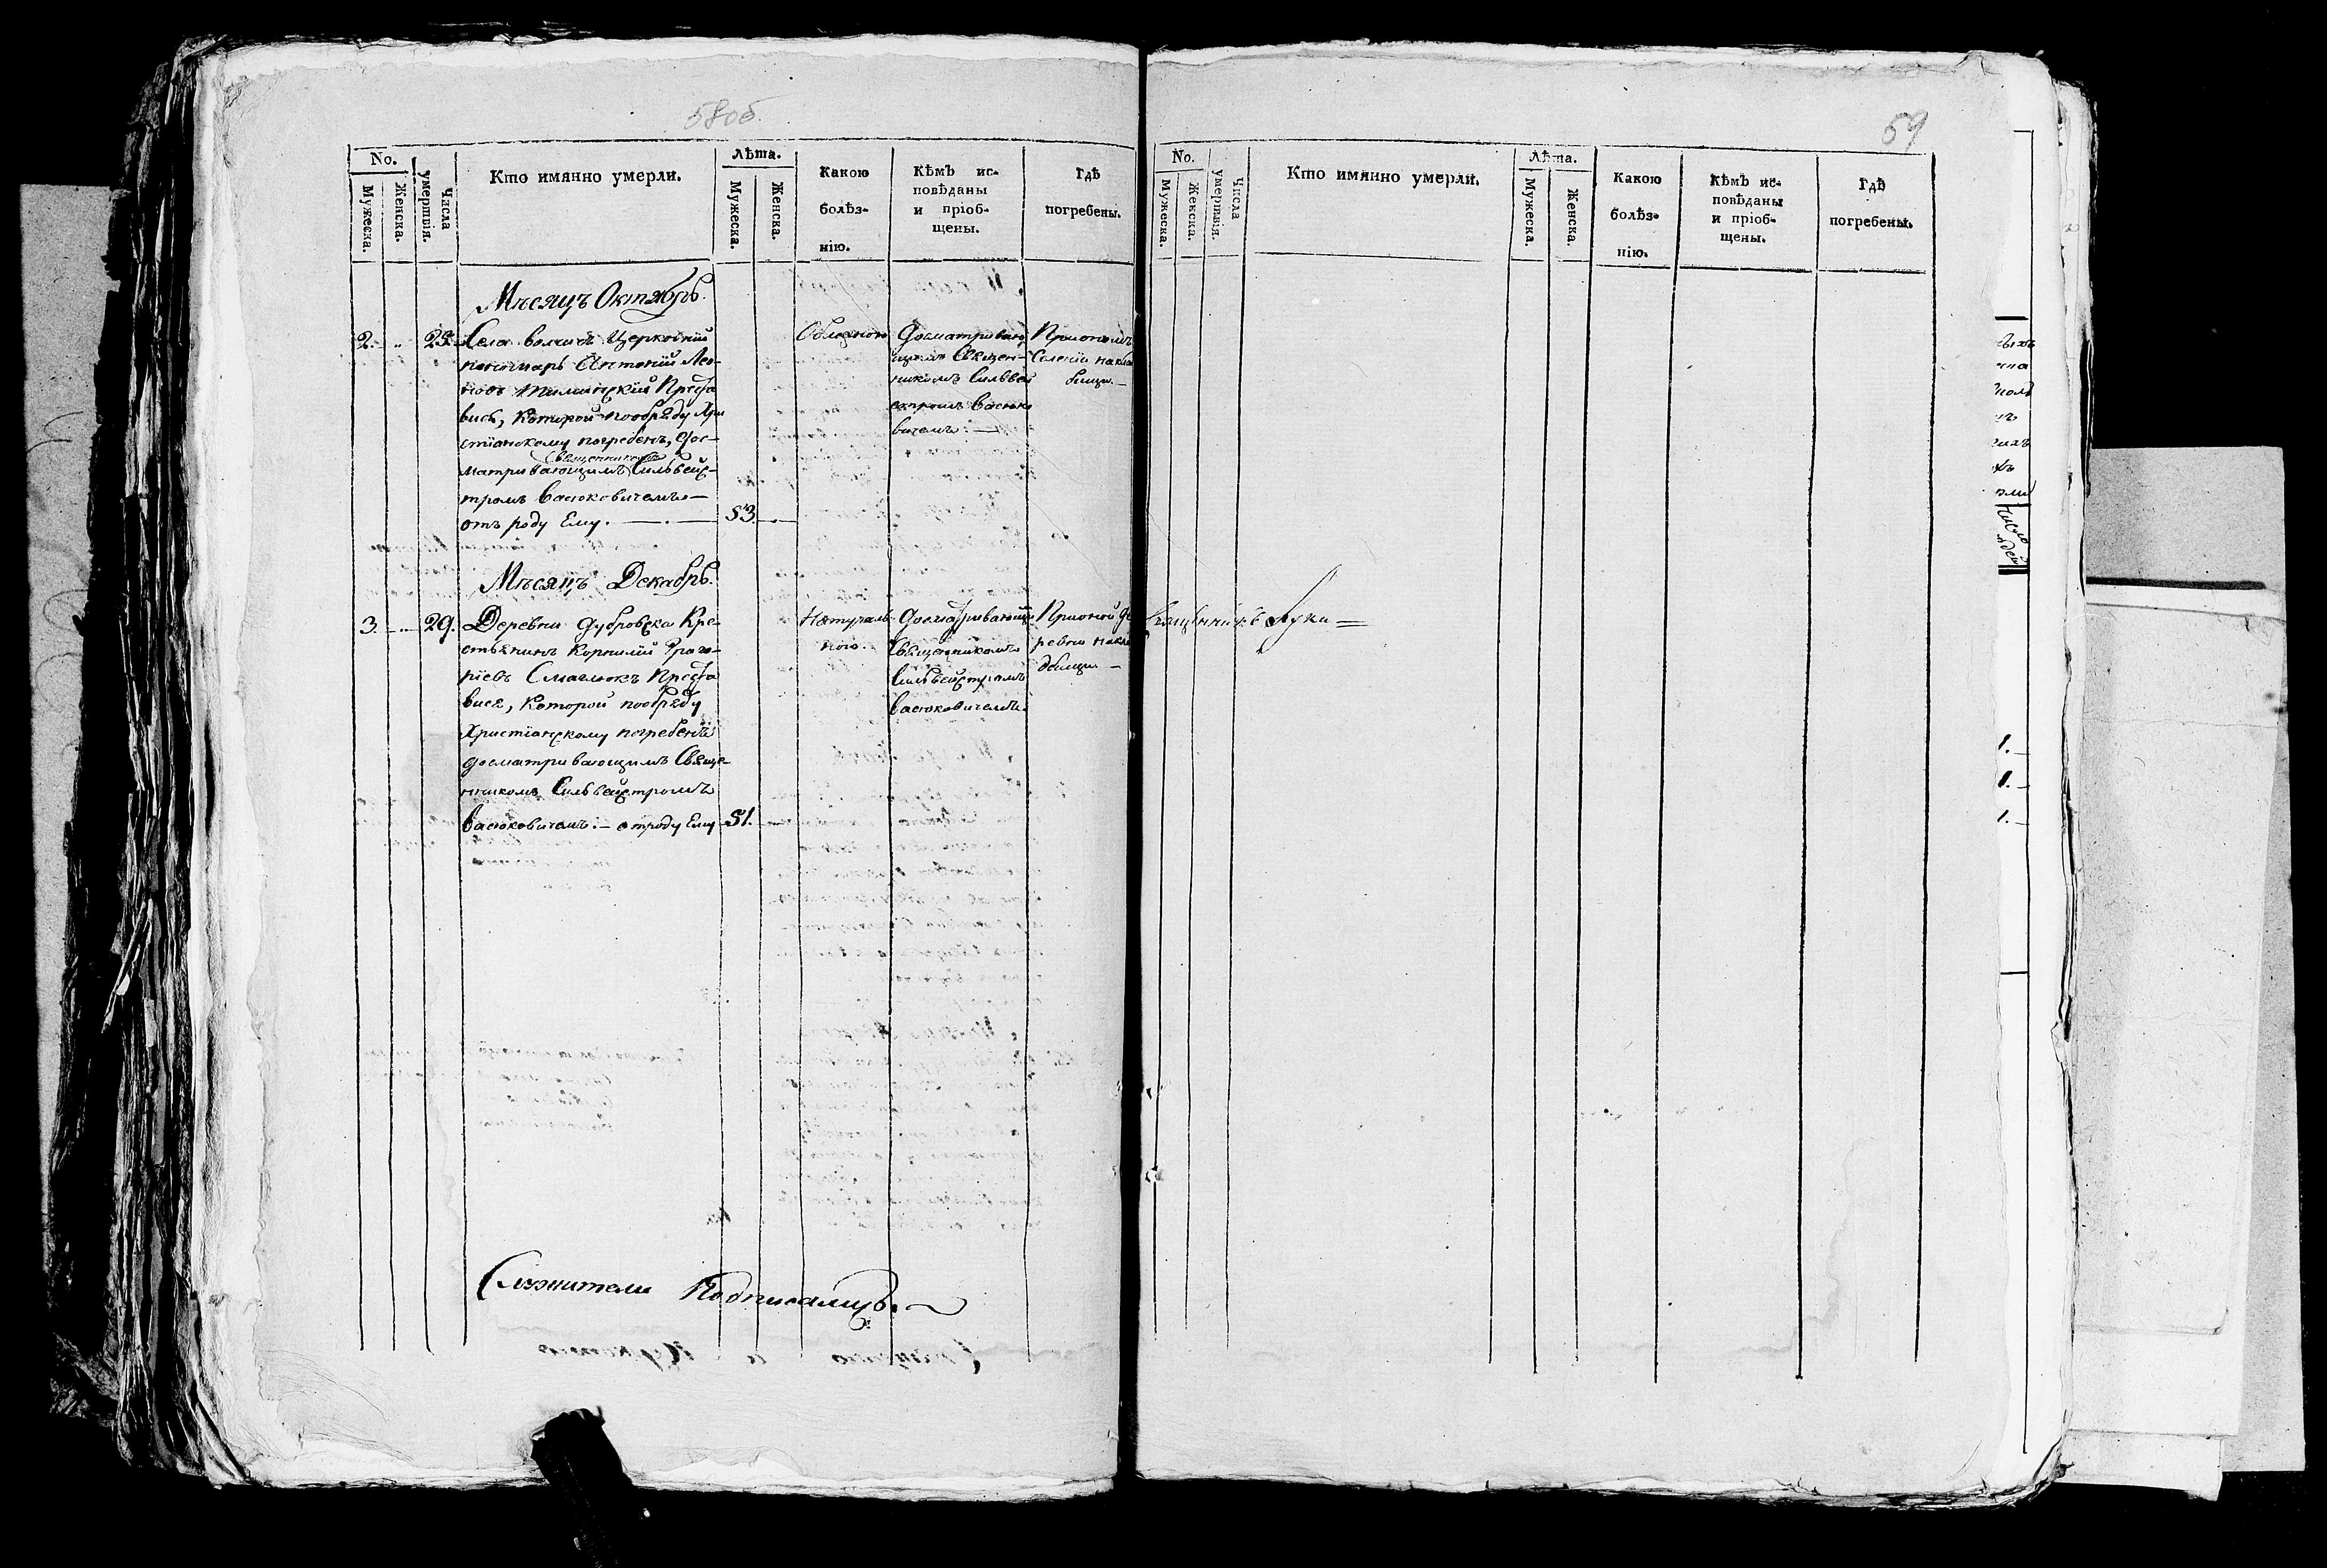 58об.
No.
Мужеска.
Женска.
Числа умертвія.
Кто имянно умерли.
Лѣта.
Мужеска.
Женска.
Какою
болѣз-
нію.
Кѣмъ ис-
повѣданы
и пріоб-
щены.
Гдѣ
погребены.
Мѣсяцъ Октябрь.
2. „ 23.
Села Церковній
пономарь Антоній Лео-
новъ Преста
висъ, которой пообряду Хри
стіанскому погребенъ, дос-
Священникомъ
матривающимъ Сильвейс-
тромъ Васюковичемъ —
отъ роду Ему. — 53. —
Досматриваю
щимъ Священ-
никомъ Сильвей
стромъ Васюко
вичемъ. —
Селеніи накла
бищи. —
Мѣсяцъ Декабрь.
3. „ 29.
Деревни Дубровска Кре-
стьянинъ Корнилій Григо-
ріевъ Смаглюкъ Преста
вися, которой пообряду
Христіанскому погребенъ
досматривающимъ Свяще-
нникомъ Сильвейстромъ
Васюковичемъ. — отроду Ему 51. —
Натураль
ною.
Досматривающи
Священникомъ
Сильвейстромъ
Васюковичемъ.
Прионой де
ревни накла
дбищи —
Служители Подписалися.
59
No.
Мужеска.
Женска.
Числа умертвія.
Кто имянно умерли.
Лѣта.
Мужеска.
Женска.
Какою
болѣз-
нію.
Кѣмъ ис-
повѣданы
и пріоб-
щены.
Гдѣ
погребены.
Священникъ Луки
1. —
1. —
1. —